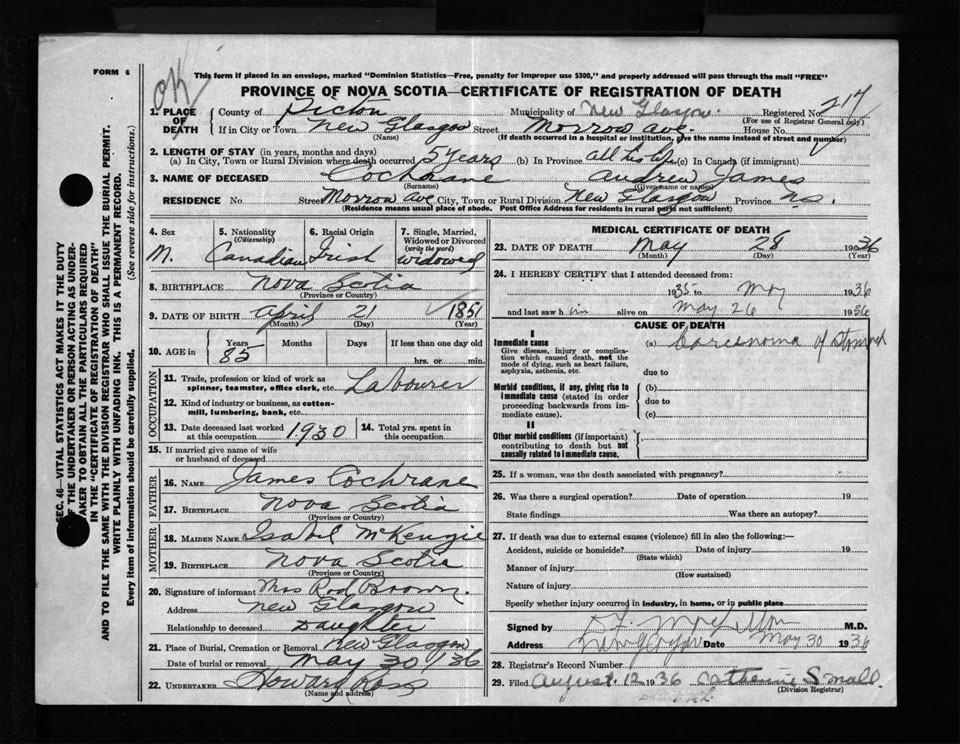 FORM 6
OK
This form if placed in an envelope, marked "Dominion Statistics—Free, penalty for improper use $300," and properly addressed will pass through the mail "FREE"
PROVINCE OF NOVA SCOTIA—CERTIFICATE OF REGISTRATION OF DEATH
1. PLACE OF DEATH County of Pictou Municipality of New Glasgow. Registered No. 217
(For use of Registrar General only)
If in City or Town New Glasgow Street Morrow Ave. House No.
(Name) (If death occurred in a hospital or institution, give the name instead of street and number)
2. LENGTH OF STAY (in years, months and days)
(a) In City, Town or Rural Division where death occurred 5 years (b) In Province all his life (c) In Canada (if immigrant)
3. NAME OF DECEASED Cochrane Andrew James
(Surname) (Given name or names)
RESIDENCE No. Street Morrow Ave City, Town or Rural Division New Glasgow Province N.S.
(Residence means usual place of abode. Post Office Address for residents in rural parts not sufficient)
4. Sex M.
5. Nationality (Citizenship) Canadian
6. Racial Origin Irish
7. Single, Married, Widowed or Divorced (write the word) widowed
8. BIRTHPLACE Nova Scotia
(Province or Country)
9. DATE OF BIRTH April 21 1851
(Month) (Day) (Year)
10. AGE in Years Months Days If less than one day old
85 hrs. or min.
OCCUPATION
11. Trade, profession or kind of work as spinner, teamster, office clerk, etc. Labourer
12. Kind of industry or business, as cotton-mill, lumbering, bank, etc.
13. Date deceased last worked at this occupation 1930
14. Total yrs. spent in this occupation
15. If married give name of wife or husband of deceased
FATHER
16. NAME James Cochrane
17. BIRTHPLACE Nova Scotia
(Province or Country)
MOTHER
18. MAIDEN NAME Isabel McKenzie
19. BIRTHPLACE Nova Scotia
(Province or Country)
20. Signature of informant Mrs Rod Brown.
Address New Glasgow
Relationship to deceased Daughter
21. Place of Burial, Cremation or Removal New Glasgow
Date of burial or removal May 30/36
22. UNDERTAKER Howard Ross
(Name and address)
MEDICAL CERTIFICATE OF DEATH
23. DATE OF DEATH May 28 1936
(Month) (Day) (Year)
24. I HEREBY CERTIFY that I attended deceased from:
1935 to May 1936
and last saw him alive on May 26 1936
CAUSE OF DEATH
I
Immediate cause
Give disease, injury or complication which caused death, not the mode of dying, such as heart failure, asphyxia, asthenia, etc.
(a) Carcinoma of Stomach
due to
Morbid conditions, if any, giving rise to immediate cause (stated in order proceeding backwards from immediate cause).
(b)
due to
(c)
II
Other morbid conditions (if important) contributing to death but not causally related to immediate cause.
25. If a woman, was the death associated with pregnancy?
26. Was there a surgical operation? Date of operation 19
State findings Was there an autopsy?
27. If death was due to external causes (violence) fill in also the following:—
Accident, suicide or homicide? Date of injury 19
(State which)
Manner of injury
(How sustained)
Nature of injury
Specify whether injury occurred in industry, in home, or in public place
Signed by M.D.
Address New Glasgow Date May 30 1936
28. Registrar's Record Number
29. Filed August 12 1936 Catherine Small.
(Division Registrar)
SEC. 46—VITAL STATISTICS ACT MAKES IT THE DUTY
OF THE UNDERTAKER OR PERSON ACTING AS UNDERTAKER TO OBTAIN ALL THE PARTICULARS REQUIRED
IN THE "CERTIFICATE OF REGISTRATION OF DEATH"
AND TO FILE THE SAME WITH THE DIVISION REGISTRAR WHO SHALL ISSUE THE BURIAL PERMIT.
WRITE PLAINLY WITH UNFADING INK. THIS IS A PERMANENT RECORD.
Every item of information should be carefully supplied. (See reverse side for instructions.)